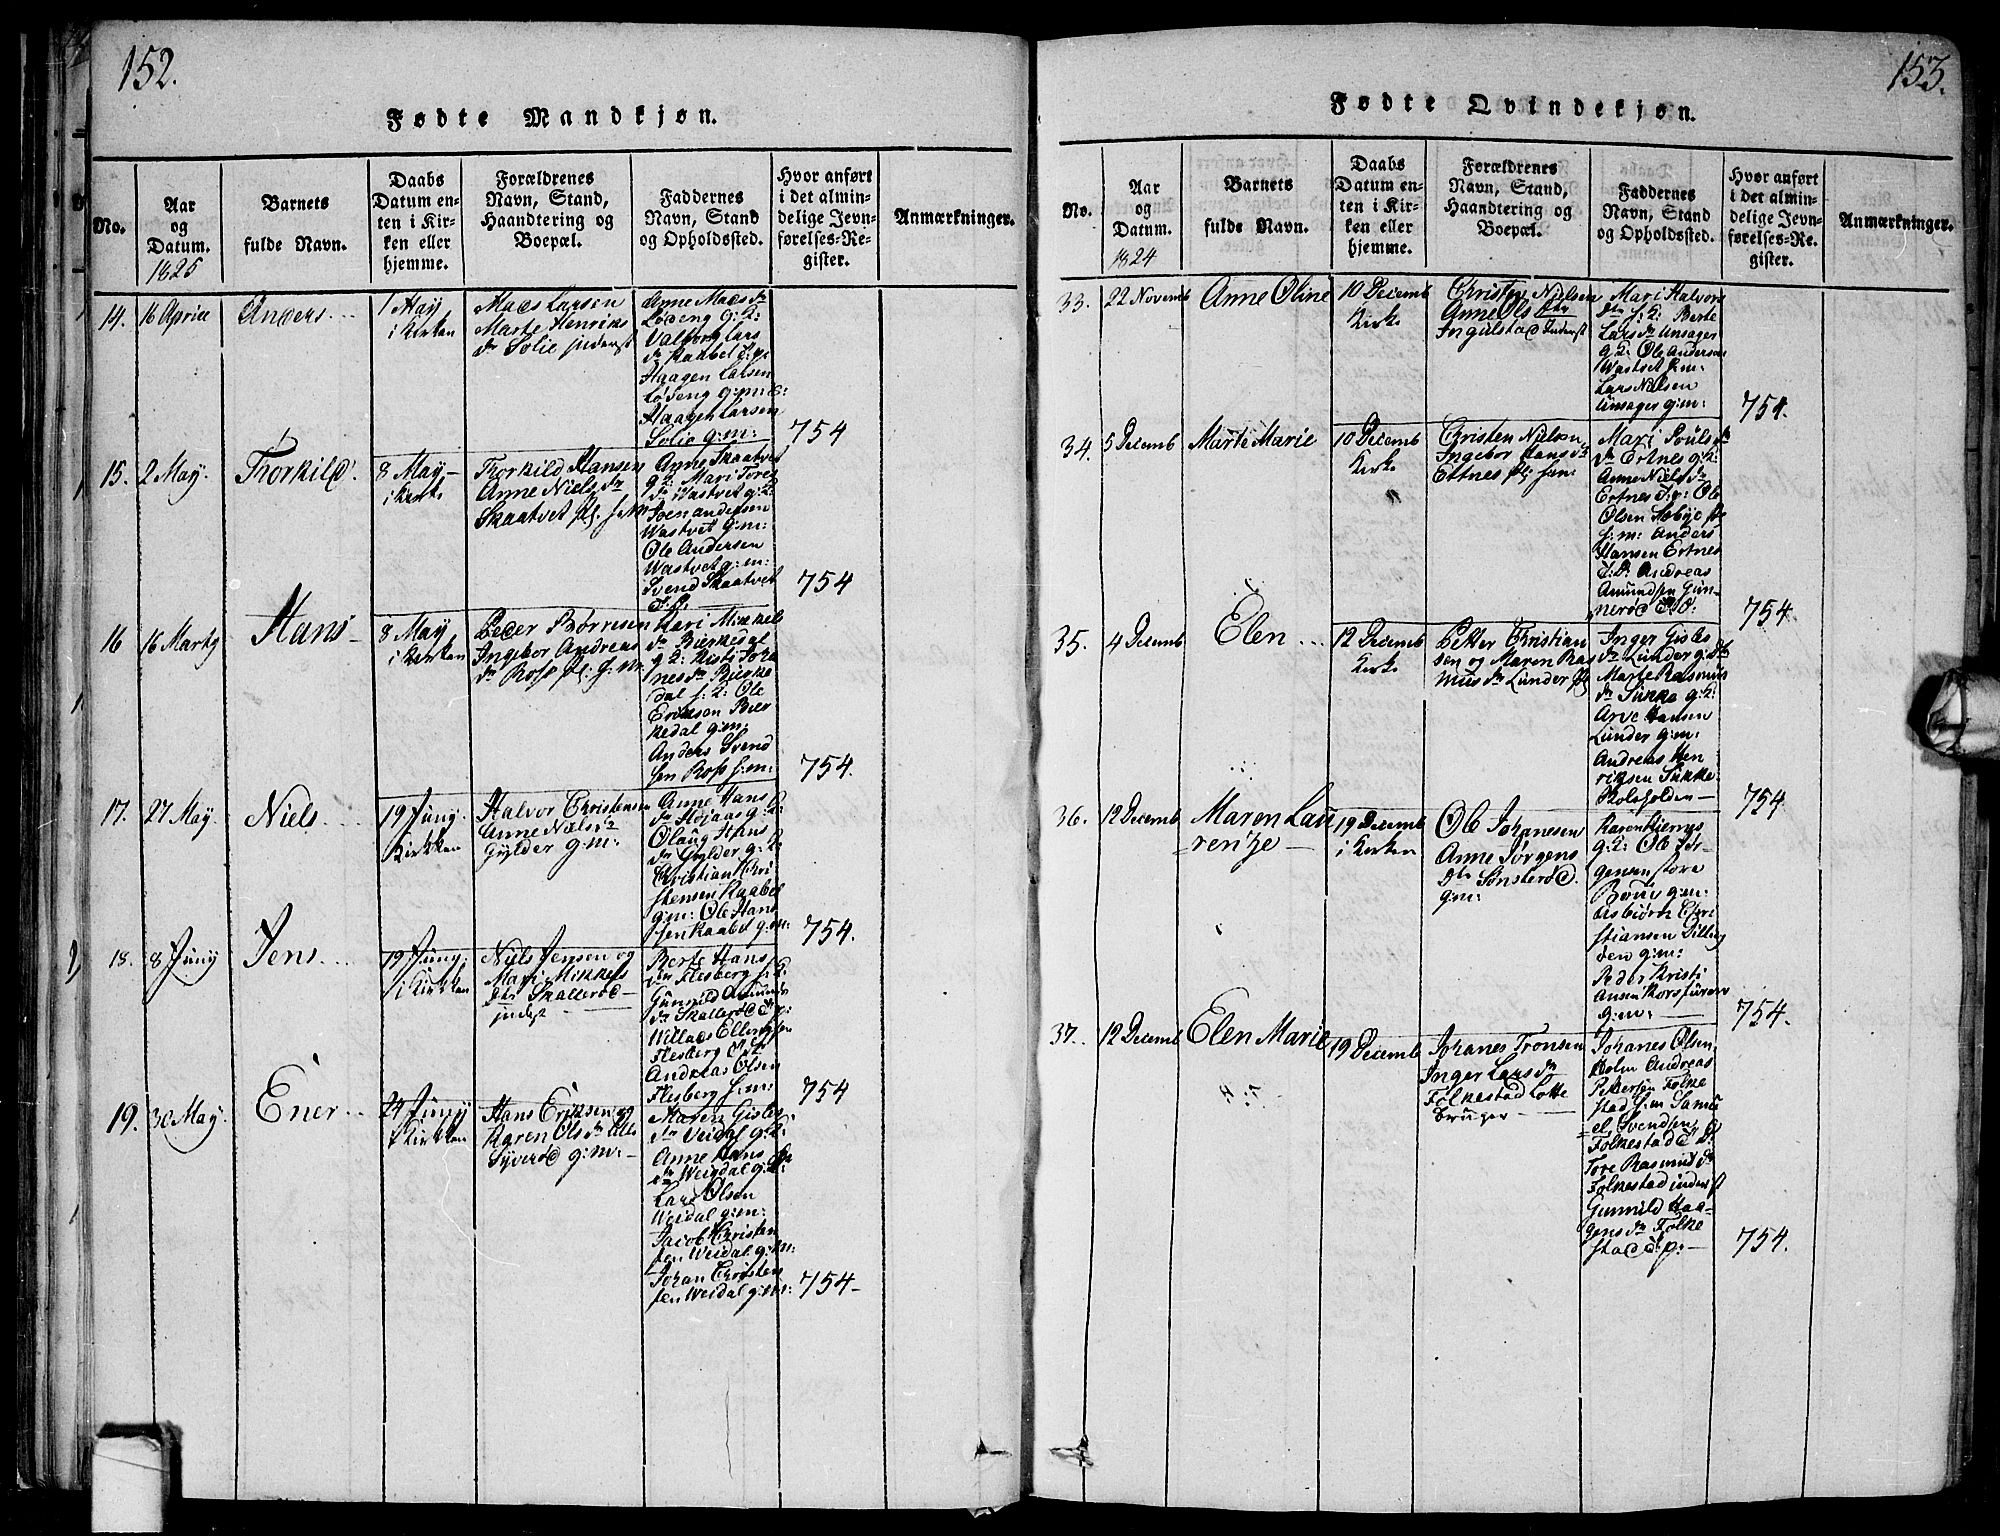 152.
Fødte Mandkjøn.
No.
Aar
og
Datum.
1825
Barnets
fulde Navn.
Daabs
Datum en-
ten i Kir-
ken eller
hjemme.
Forældrenes
Navn, Stand,
Haandtering og
Boepæl.
Faddernes
Navn, Stand
og Opholdssted.
Hvor anført
i det almin-
delige Jevn-
førelses-Re-
gister.
Anmærkninger.
14.
16 Aprill
Anders
1 May
i Kirken
Mads Larsen
Marte Henriks
dr Solie
Anne Mads dr
Lødeng g:k:
Valborg Lars
dr Raabel d:p:
Haagen Larsen
Lødeng g:m:
Haagen Larsen
Solie g:m:
754
15.
2 May.
Thorkild.
8 May
i Kirke
Thorkild Hansen
Anne Niels dr
Skaatvet pl.
Anne Skaatvet
g:k: Mari Tores
dr Wastvet g:k:
Joen andersen
Wastvet g:m:
Ole Andersen
Wastvet g:m:
Svend Skaatvet
754
16
16 Marty
Hans
8 May
i Kirken
Peder Børresen
Ingebor Andreas
dr Ross pl. h.m.
Kari Mikkels
dr Bierkedal
g:k: Kisti Joha
nes dr Bierke
dal h:k: Ole
Eriksen Bier
kedal g:m:
Anders Svend
sen Ross h:m:
754.
17.
27 May.
Niels
19 Juny.
Kirken
Halvor Christensen
Anne Niels dr
Gylder g:m:
Anne Hans
dr Højaas g:k:
Olaug Hans
dr Gylder g:k:
Christian Kri
stensen Raabel
g:m: Ole Hans
sen Raabel g:m:
754.
18.
8 Juny
Jens
19 Juny.
i Kirken
Niels Jensen og
Mari Mikkels
dtr Skallerød
Berte Hans
dr Flesberg h:k:
Gunild Amunds
dr Skallerød d:p:
Willads Ellengsen
Flesberg
Andreas Olsen
Flesberg h:m:
754
19.
30 May.
Ener
24 Juny
Kirken
Hans Eriksen og
Karen Ols dr Lille
Syverød g:m:
Maren Gisles
dr Veidal g:k:
Anne Hans
dr Weidal g:k:
Lars Olsen
Weidal g:m:
Jacob Christen
sen Weidal g:m:
Johan Christen
sen Weidal g:m:
754
153.
Fødte Qvindekjøn.
No.
Aar
og
Datum.
1824
Barnets
fulde Navn.
Daabs
Datum en-
ten i Kir-
ken eller
hjemme.
Forældrenes
Navn, Stand,
Haandtering og
Boepæl.
Faddernes
Navn, Stand
og Opholdssted.
Hvor anført
i det almin-
delige Jevn-
førelses-Re-
gister.
Anmærkninger.
33.
22 Novemb
Anne Oline
10 Decemb
Kirke
Christen Nielsen
Anne Ols dtr
Ingulstad Inderst
Mari Halvors
dtr h:k: Berte
Lars dr Unsager
g:k: Ole Andersen
Wastvet h:m:
Lars Nielsen
Unsager g:m:
754.
34.
5 Decemb
Marte Marie
10 Decemb
Kirke
Christen Nielsen
Ingebor Hans dr
Ertnes pl:
Mari Pouls
dr Ertnes g:k:
Anne Niels dr
Ertnes d:p: Ole
Olsen Sæbye
h:m: Anders
Hansen Ertnes
d:D: Andreas
Amundsen Gun-
nerød
754.
35.
4 Decemb
Elen
12 Decemb
Kirke
Petter Christian
sen og Maren Ras
mus dr Lunder pl
Inger Gisles
dr Lunder g:k:
Marte Rasmus
dr Sukke g:k:
Arve Hansen
Lunder g:m:
Andreas Hen
riksen Sukke
754
36.
12 Decemb
Maren Lau
rentze
19 Decemb
i Kirken
Ole Johanesen
Anne Jørgens
Dtr Sønsterød.
g:m:
g:k: Ole Jør-
gensen store
g:m:
Asbiørn Chri
stiansen Dilling
den g:m:
Peder Kristi
ansen
g:m:
754.
37.
12 Decemb
Elen Marie
19 Decemb
Johanes Tronsen
Inger Lars dr
Folkestad Lotte
bruger
Johanes Olsen
Holm Andreas
Pedersen Folke
stad h:m Samu
el Svendsen
Folkestad d:D:
Tore Rasmus dr
Folkestad inderst
Gunnild Haa-
gens dr Folke
stad d:p:
754.